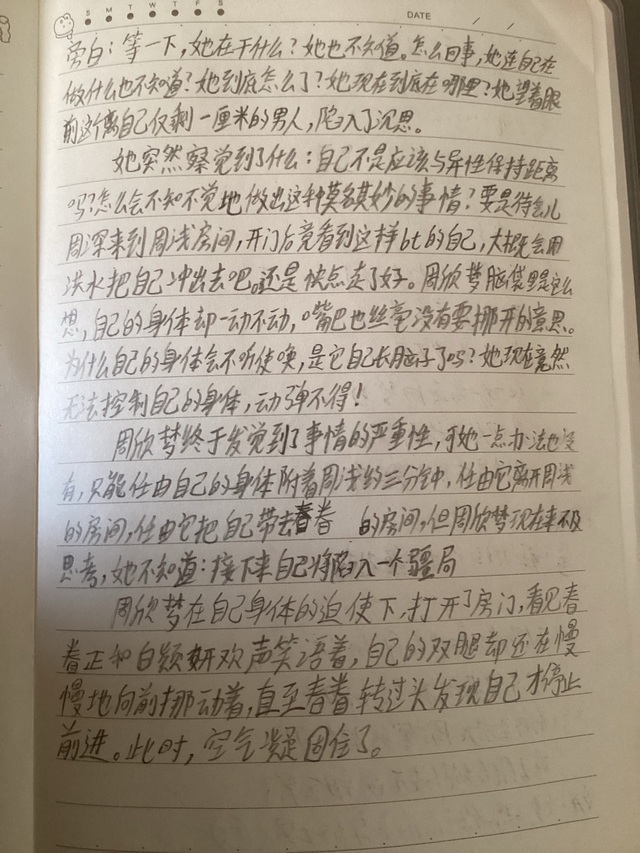 S M T W T F S
DATE / /
旁白：等一下，她在干什么？她也不知道。怎么回事，她连自己在
做什么也不知道？她到底怎么了？她现在到底在哪里？她望着眼
前这个离自己仅剩一厘米的男人，陷入了沉思。
她突然察觉到了什么：自己不是应该与异性保持距离
吗？怎么会不知不觉地做出这种莫名其妙的事情？要是待会儿
周深来到周浅房间，开门后竟看到这样bt的自己，大概会用
洪水把自己冲出去吧。还是快点走了好。周欣梦脑袋里是这么
想，自己的身体却一动不动，嘴巴也丝毫没有要挪开的意思。
为什么自己的身体会不听使唤，是它自己长脑子了吗？她现在竟然
无法控制自己的身体，动弹不得！
周欣梦终于发觉到了事情的严重性，可她一点办法也没
有，只能任由自己的身体附着周浅约三分钟，任由它离开周浅
的房间，任由它把自己带去春眷 的房间，但周欣梦现在来不及
思考，她不知道：接下来自己将陷入一个疆局
周欣梦在自己身体的迫使下，打开了房门，看见春
眷正和白颖妍欢声笑语着，自己的双腿却还在慢
慢地向前挪动着，直至春眷转过头发现自己才停止
前进。此时，空气凝固住了。